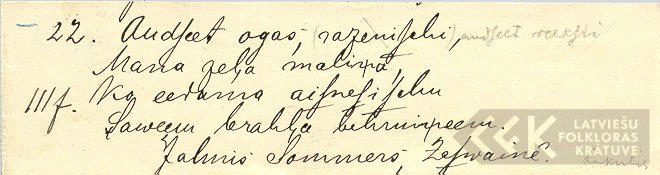 22. Audſeet ogas, (razeniſchi,) audſeet reekſti
Mana zeļa maliņā,
IIIf. Ko eedama aiſneſiſchu
Saweem brahļa behrniņeem.
Jahnis Sommers, Zeſwainē.
LATVIEŠU
FOLKLORAS
KRĀTUVE